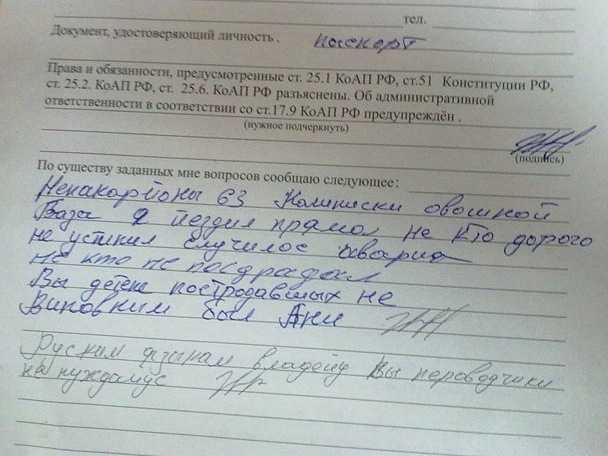 тел.
Документ, удостоверяющий личность . паспорт
Права и обязанности, предусмотренные ст. 25.1 КоАП РФ, ст.51 Конституции РФ,
ст. 25.2. КоАП РФ, ст. 25.6. КоАП РФ разъяснены. Об административной
ответственности в соответствии со ст.17.9 КоАП РФ предупреждён .
(нужное подчеркнуть)
(подпись)
По существу заданных мне вопросов сообщаю следующее:
63 овошной
База я пездил прямол не кто дорого
не устипил случилос авария
не кто не посдрадал
Вы детепе постродавшых не
Виновним был Они
Руским язиком владейу Вы переводчики
не нуждаюус